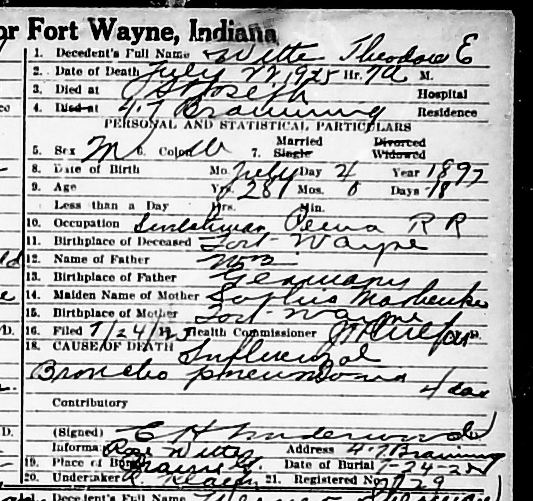 or Fort Wayne, Indiana
1. Decedent's Full Name Witte Theodore E
2. Date of Death July 22, 1925 Hr. 7 a M.
3. Died at St Joseph Hospital
4. Died at 417 Residence
PERSONAL AND STATISTICAL PARTICULARS
5. Sex M 6. Color W 7. Married Single Divorced Widowed
8. Date of Birth Mo. July Day 4 Year 1897
9. Age Yrs. 28 Mos. 0 Days 18
Less than a Day Hrs. Min.
10. Occupation Penna R R
11. Birthplace of Deceased Fort Wayne
12. Name of Father Wm
13. Birthplace of Father Germany
14. Maiden Name of Mother
15. Birthplace of Mother Fort Wayne
16. Filed 7/24/1925 Health Commissioner
18. CAUSE OF DEATH Influenzal
Broncho pneumonia 4 da
Contributory
(Signed) E H Underwood
Informant Rose Witte Address 417
19. Place of Burial Date of Burial 7-24-25
20. Undertaker 21. Registered No.
Decedent's Full Name